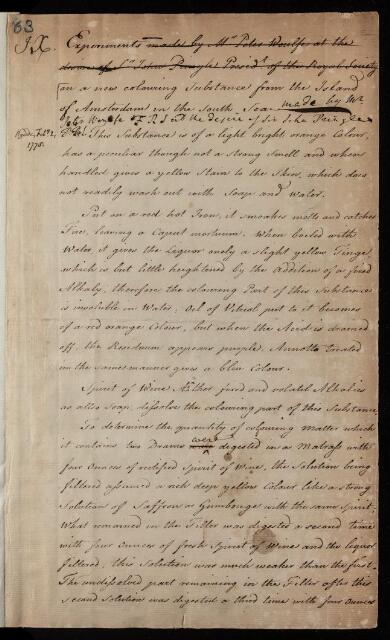 63
IX. Experiments made by Mr. Peter Woulfe, at the
desire of Sr. John Pringle Presidt. of the Royal Society
on a new colouring Substance from the Island
of Amsterdam in the South Sea made by Mr
Peter Woulfe F.R.S. at the desire of Sir John Pringle
1775.
This Substance is of a light bright orange Colour,
has a peculiar though not a strong Smell and when
handled gives a yellow Stain to the Skin, which does
not readily wash out with Soap and Water.
Put on a red hot Iron, it smoakes melts and catches
Fire, leaving a Caput mortuum. When boiled with
Water, it gives the Liquor only a slight yellow Tinge,
which is but little heightened by the Addition of a fixed
Alkaly, therefore the colouring Part of this Substance
is insoluble in Water; Oil of Vitriol put to it becomes
of a red orange Colour, but when the Acid is drained
off, the Residuum appears purple. Annotto treated
in the same manner gives a blue Colour.
Spirit of Wine Æther fixed and volatile Alkalies
as also Soap, dissolve the colouring part of this Substance
To determine the quantity of colouring matter which
it contains two Drams were digested in a Matrass with
four Ounces of rectified Spirit of Wine, the Solution being
filtered assumed a rich deep yellow Colour like a strong
Solution of Saffron or Gumboge with the same Spirit.
What remained in the Filter was digested a second time
with four Ounces of fresh Spirit of Wine and the liquor
filtered; this Solution was much weaker than the first.
The undissolved part remaining in the Filter after this
second Solution was digested a third time with four Ounces